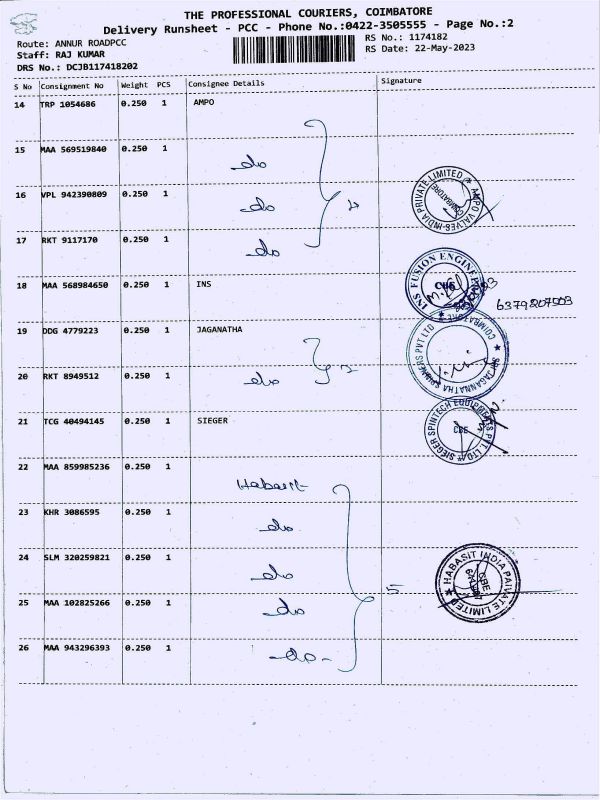 THE PROFESSIONAL COURIERS, COIMBATORE
Delivery Runsheet - PCC - Phone No.:0422-3505555 - Page No.:2
Route: ANNUR ROADPCC
Staff: RAJ KUMAR
DRS No.: DCJB117418202
RS No.: 1174182
RS Date: 22-May-2023
S No Consignment No Weight PCS Consignee Details Signature
14 TRP 1054686 0.250 1 AMPO
15 MAA 569519840 0.250 1 do
16 VPL 942390809 0.250 1 do 4
AMPO VALVES INDIA PRIVATE LIMITED COIMBATORE
17 RKT 9117170 0.250 1 do
18 MAA 568984650 0.250 1 INS
INS FUSION ENGINEER
6379207503
19 DDG 4779223 0.250 1 JAGANATHA
SRI JAGANNATHA SPINNERS PVT LTD COIMBATORE
20 RKT 8949512 0.250 1 do 2
21 TCG 40494145 0.250 1 SIEGER
SIEGER SPINTECH EQUIPMENTS PVT. LTD
22 MAA 859985236 0.250 1 Habasit
23 KHR 3086595 0.250 1 do
24 SLM 320259821 0.250 1 do
HABASIT INDIA PRIVATE LIMITED CBE
25 MAA 102825266 0.250 1 do 5
26 MAA 943296393 0.250 1 do